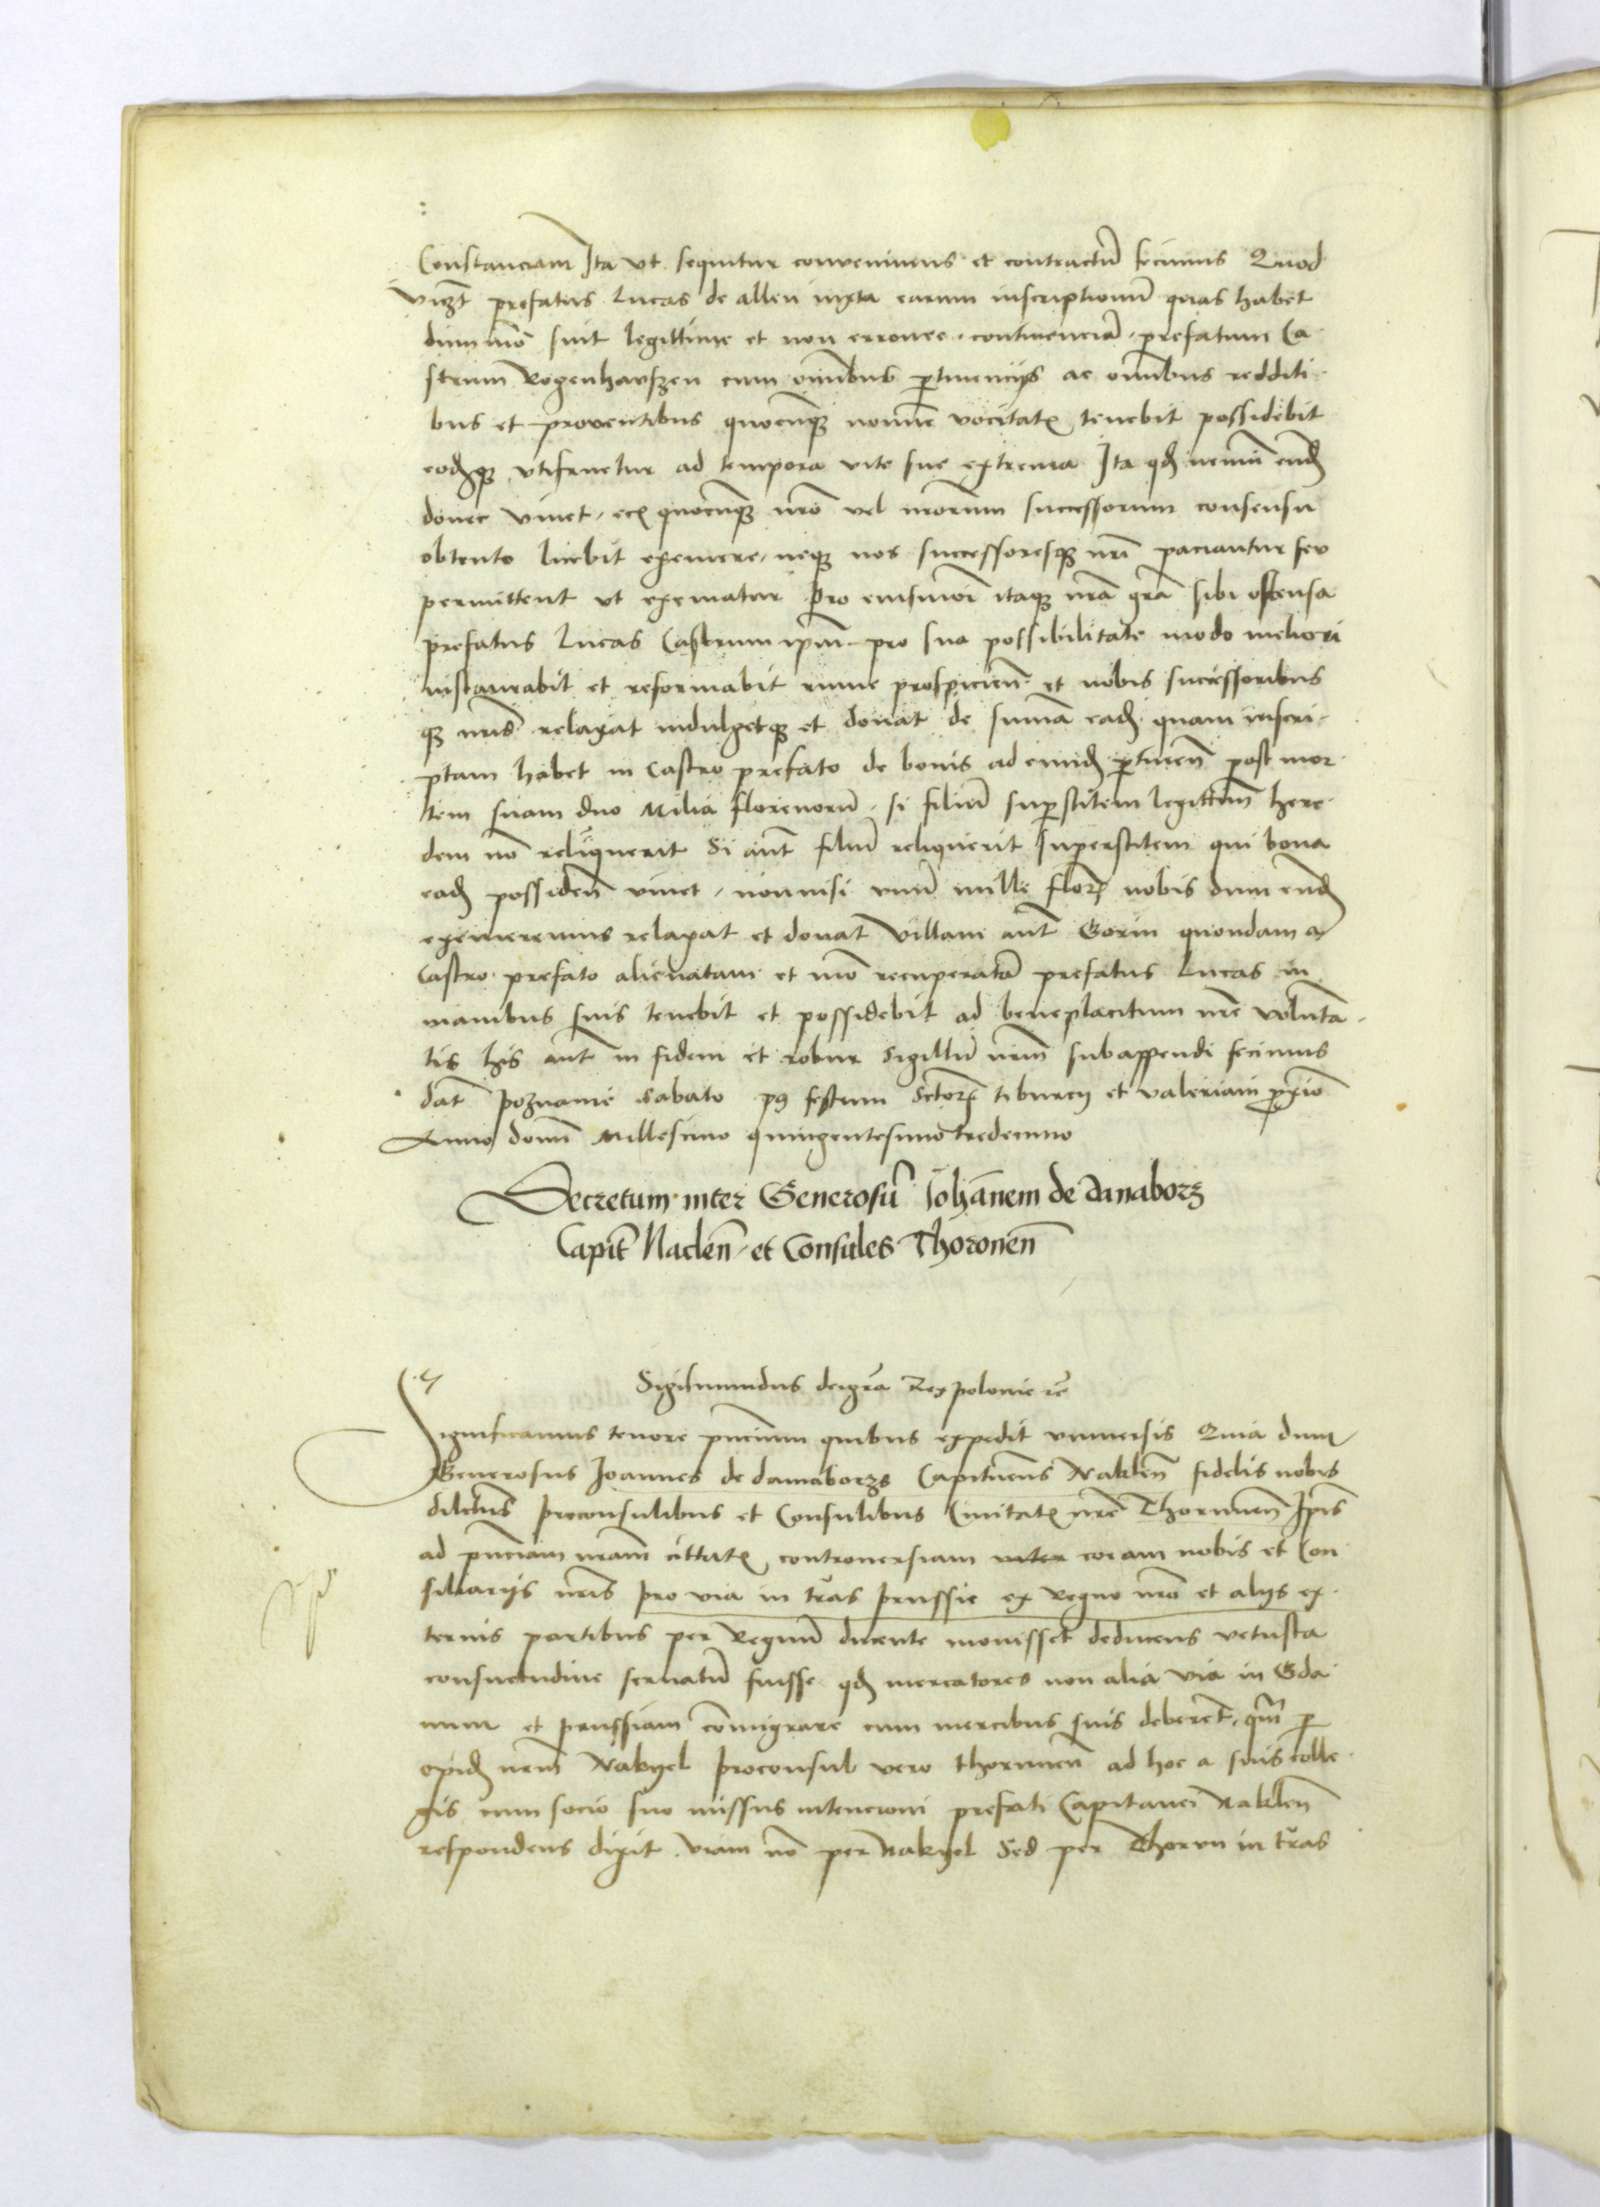 Constanciam Ita vt sequitur convenimus et contractū fecimus Quod
vicz̄t prefatus Lucas de allen iuxta earum inscriptionū quas habet
dummō sint legittime et non erronee continenciā prefatum Ca
strum Rogenhawszen cum om̄ibus ꝑtinencijs ac om̄ibus redditi
bus et proventibus quocunqꝫ nomīe vocitatꝭ tenebit possidebit
eodꝫqꝫ vtifruetur ad tempora vite sue extrema Ita qđ nemini eund
donec vivet quocunqꝫ nr̄o vel nr̄orum successorum consensu
obtento licebit exemere neqꝫ nos successoresqꝫ nr̄i paciantur seu
permittent vt exematur Pro eiusmōi itaqꝫ nr̄a gr̄a sibi ostensa
prefatus Lucas Castrum ip̄m pro sua possibilitate modo meliori
instaurabit et reformabit ruine prospicien̄ et nobis successoribus
qꝫ nr̄is relaxat indulgetqꝫ et donat de summa eadꝫ quam inscri
ptam habet in Castro prefato de bonis ad eundꝫ ꝑtinen̄ post mor
tem suam duo Milia florenorū si filiū suꝑstitem legittim̄ here
dem nō reliquerit Si aut̄ filiū reliquerit superstitem qui bona
eadꝫ possiden̄ vivet nonnisi vnū mille florꝭ nobis dum eund
exemeremus relaxat et donat Villam aut̄ Gorin quondam a
Castro prefato alienatam et mō recuperatā prefatus Lucas in
manibus suis tenebit et possidebit ad beneplacitum nr̄e volunta
tis his aut̄ in fidem et robur Sigillū nr̄m subappendi fecimus
dat̄ Poznanie sabato pꝰ festum Sctōrꝭ tiburcij et valeriani ꝓxīo
Anno domī Millesimo quingentesimo tredecimo
Decretum inter Generosū Iohānem de danaborz
Capit̄ Naclen̄ et Consules Thoronen̄
Sigismundus dei gr̄a Rex polonie ꝛc̄
Significamus tenore pn̄cium quibus expedit vniversis Quia dum
Generosus Joannes de damaborzs Capitneūs Naklen̄ fidelis nobis
dilctūs Preconsulibus et Consulibus Civitatꝭ nr̄e Thorunen̄ Ip̄is
ad pn̄ciam nr̄am cittatꝭ controversiam inter coram nobis et Con
siliarijs nr̄is pro via in tr̄as Prussie ex Regno nr̄o et alijs ex
ternis partibus per Regnū ducente movisset deducens vetusta
consuetudine servatū fuisse qđ mercatores non alia via in Gda
num et Prussiam cōmigrare cum mercibus suis deberet̄ qm̄ ꝑ
opidꝫ nr̄m Nakyel Proconsul vero thorunen̄ ad hoc a suis colle
gis cum socio suo missus intencioni prefati Capitanei Naklen̄
respondens dixit viam nō per Nakyel Sed per Thorun in tr̄as